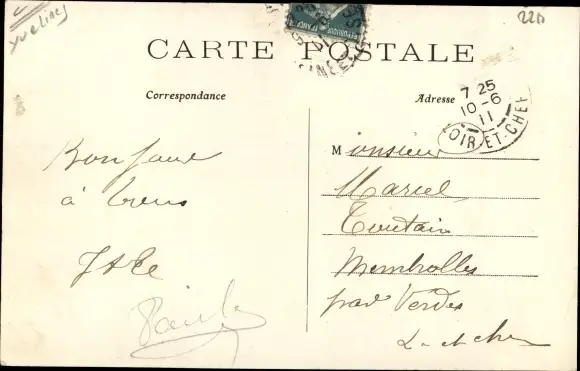 Yvelines
22D
CARTE POSTALE
Correspondance
Adresse
7 25
10-6
11
LOIR-ET-CHER
Bonjour
à tous
Monsieur
Marcel
Toutain
Membrolles
par Verdes
L-et-cher